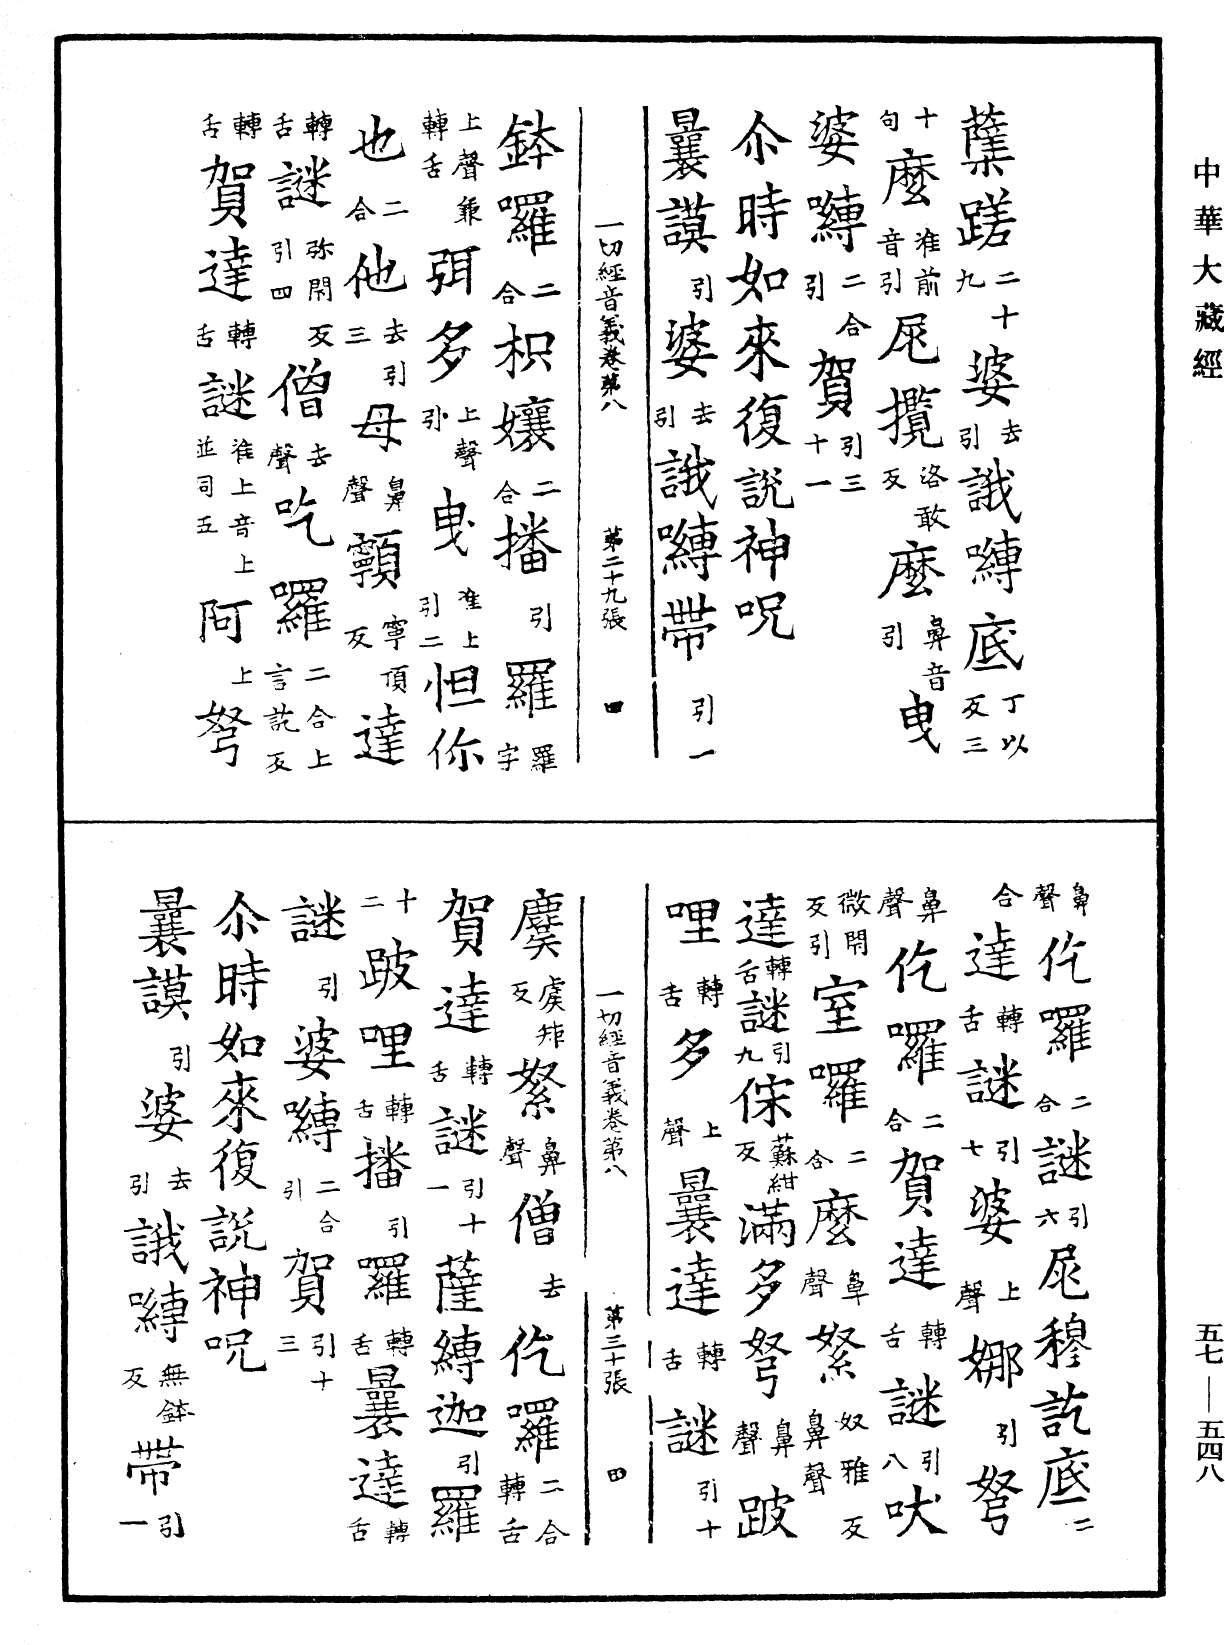 中華大藏經
薩蹉二十九婆去引誐嚩底丁以反三
十句麽准前音引尾攬洛敢反麽鼻音引曳
婆嚩二合引賀引三十一
尒時如來復說神呪
曩謨引婆去引誐嚩帶引一
一切經音義卷第八 第二十九張 四
鉢囉二合枳孃二合播引羅羅字
上聲兼轉舌弭多上聲引曳准上引二怛你
也二合他去引三母鼻聲顐寧頂反達
轉舌謎弥閉反引四僧去聲吃囉二合上言訖反
轉舌賀達轉舌謎准上音上並司五阿上弩
鼻聲仡囉二合謎引六尾穆訖底二
合達轉舌謎引七婆上聲娜引弩
鼻聲仡囉二合賀達轉舌謎引八吠
微閉反引室囉二合麽鼻聲絮奴雅反鼻聲
達轉舌謎引九倸蘇紺反滿多弩鼻聲跛
哩轉舌多上聲曩達轉舌謎引十
一切經音義卷第八 第三十張 四
麌虞矩反絮鼻聲僧去仡囉二合轉舌
賀達轉舌謎引十一薩縛迦引羅
十二跛哩轉舌播引囉轉舌曩達轉舌
謎引婆嚩二合引賀引十三
尒時如來復說神呪
曩謨引婆去引誐嚩無鉢反帶引一
五七—五四八